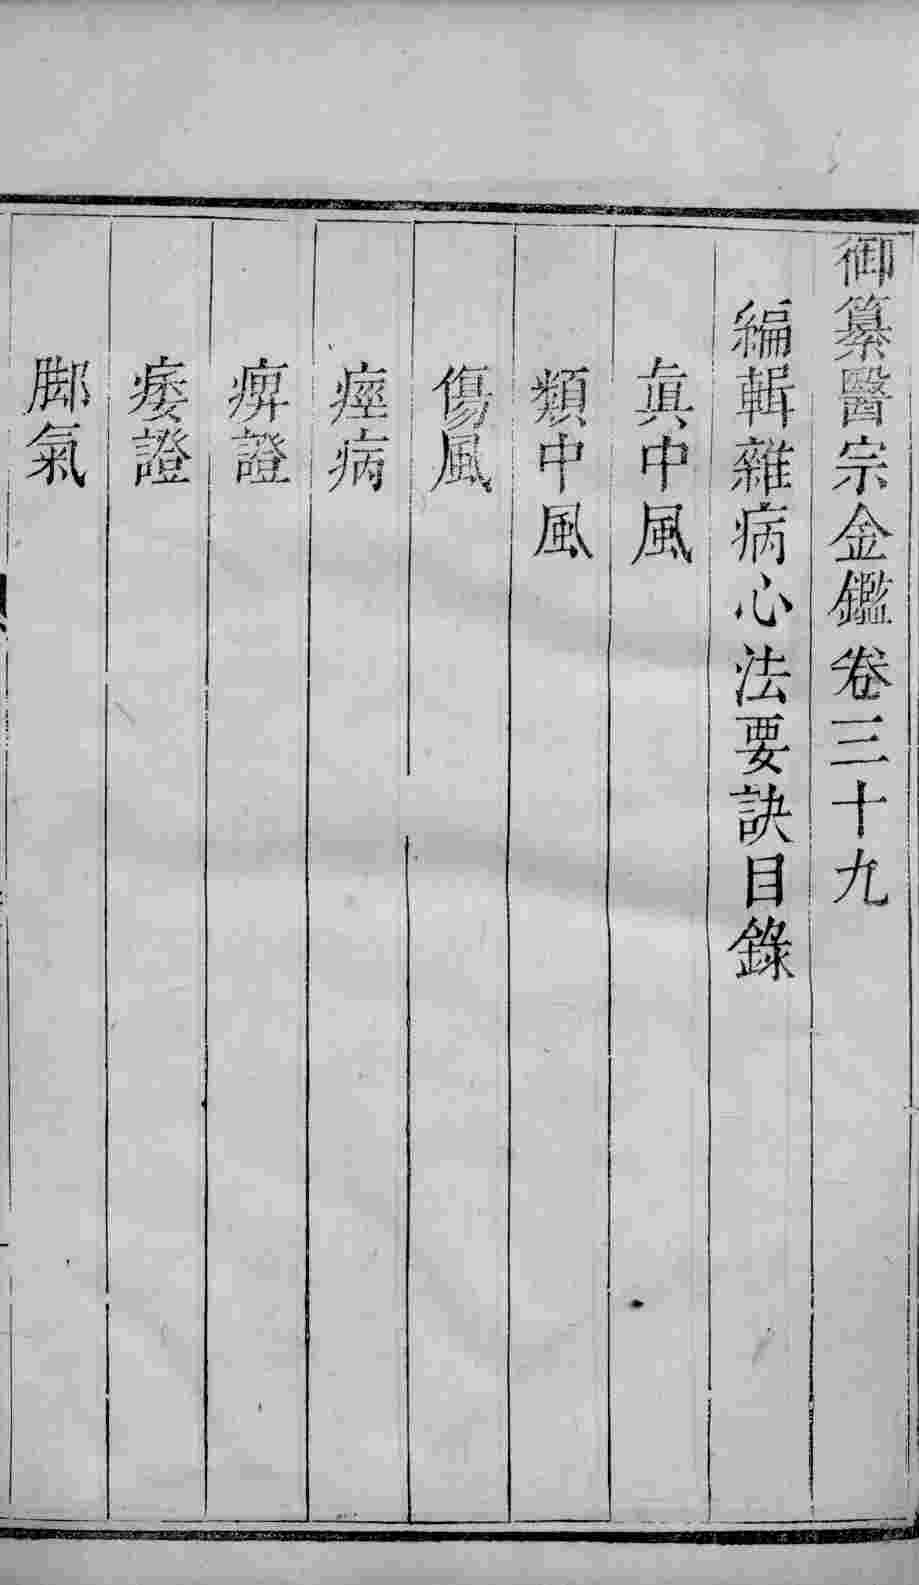 御纂醫宗金鑑卷三十九
編輯雜病心法要訣目錄
眞中風
類中風
傷風
痙病
痺證
痿證
脚氣